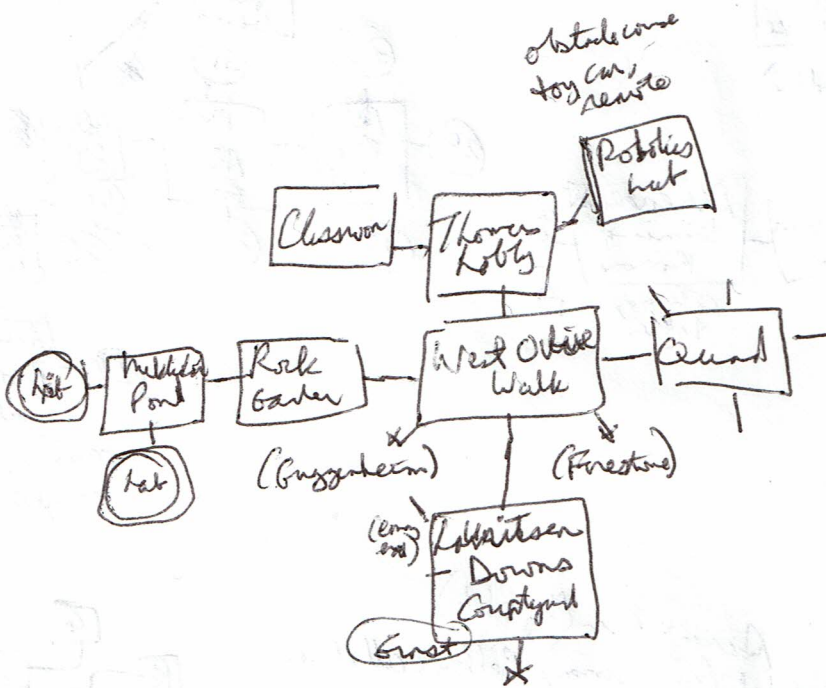 obstacle course
toy car,
remote
Robotics
Lab
Classroom
Thomas
Lobby
Lab
Pond
Rock
Garden
West Olive
Walk
Quad
(Guggenheim)
(Firestone)
Lab
Lauritsen
Downs
Courtyard
Ernst